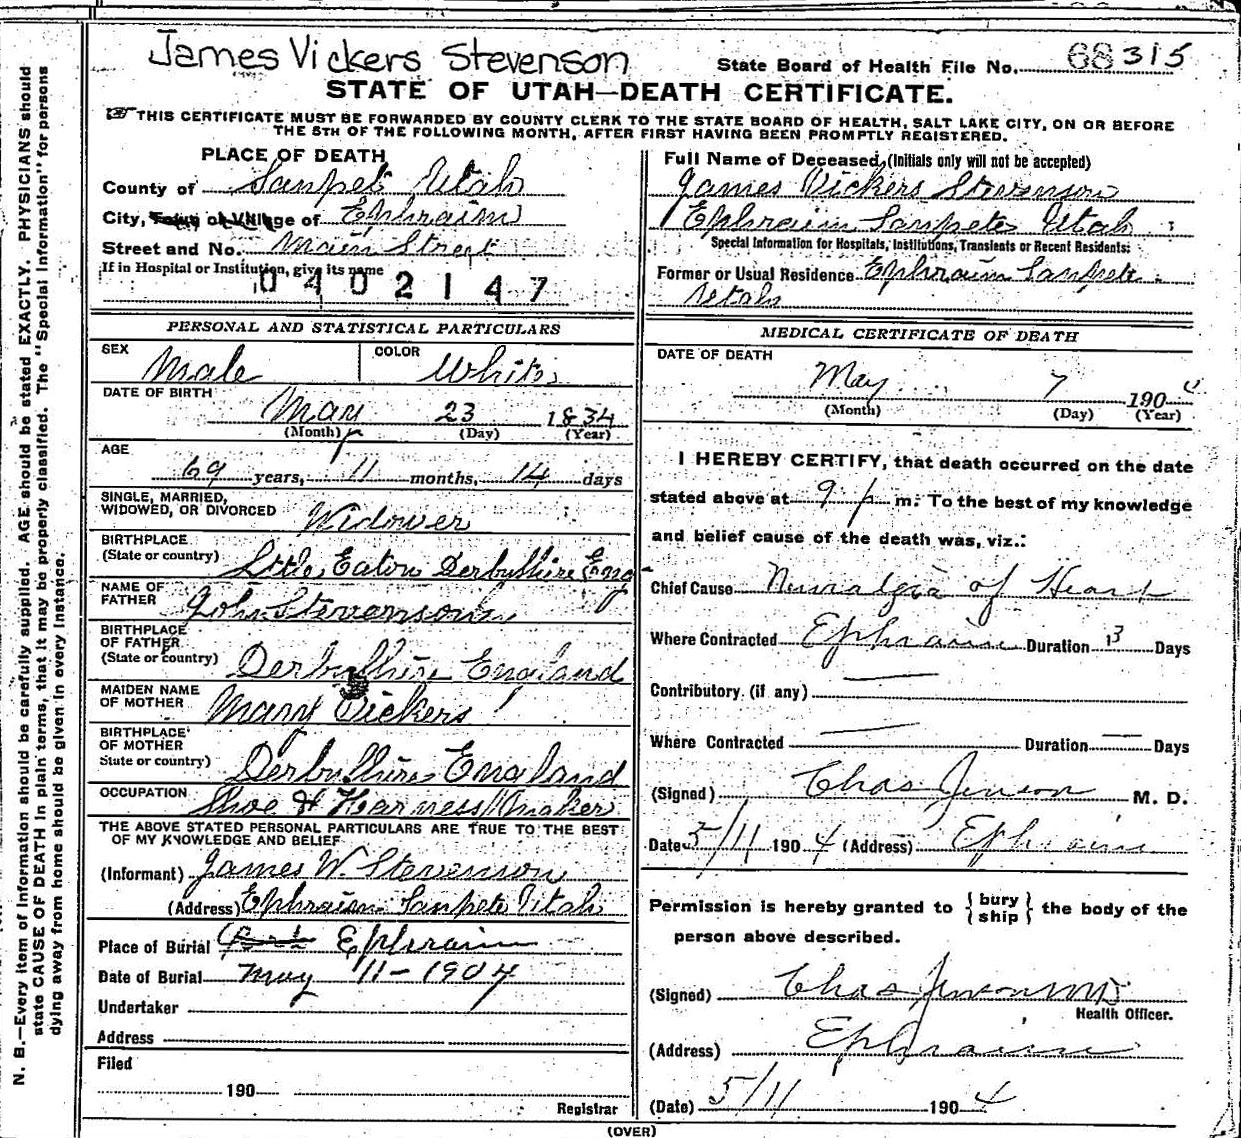 James Vickers Stevenson
State Board of Health File No. 68315
STATE OF UTAH—DEATH CERTIFICATE.
THIS CERTIFICATE MUST BE FORWARDED BY COUNTY CLERK TO THE STATE BOARD OF HEALTH, SALT LAKE CITY, ON OR BEFORE
THE 5TH OF THE FOLLOWING MONTH, AFTER FIRST HAVING BEEN PROMPTLY REGISTERED.
PLACE OF DEATH
County of Sanpete Utah
City, Town or Village of Ephraim
Street and No. Main Street
If in Hospital or Institution, give its name
0402147
Full Name of Deceased, (Initials only will not be accepted)
James Vickers Stevenson
Ephraim Sanpete Utah
Special Information for Hospitals, Institutions, Transients or Recent Residents:
Former or Usual Residence Ephraim Sanpete
Utah
PERSONAL AND STATISTICAL PARTICULARS
SEX Male COLOR White
DATE OF BIRTH May 23 1834
(Month) (Day) (Year)
AGE
69 years, 11 months, 14 days
SINGLE, MARRIED,
WIDOWED, OR DIVORCED Widower
BIRTHPLACE
(State or country) Little Eaton Derbyshire Eng
NAME OF
FATHER John Stevenson
BIRTHPLACE
OF FATHER
(State or country) Derbyshire England
MAIDEN NAME
OF MOTHER Mary Vickers
BIRTHPLACE
OF MOTHER
State or country) Derbyshire England
OCCUPATION Shoe & Harness Maker
THE ABOVE STATED PERSONAL PARTICULARS ARE TRUE TO THE BEST
OF MY KNOWLEDGE AND BELIEF
(Informant) James W. Stevenson
(Address) Ephraim Sanpete Utah
Place of Burial Ephraim
Date of Burial May 11-1904
Undertaker
Address
Filed
190
Registrar
MEDICAL CERTIFICATE OF DEATH
DATE OF DEATH
May 7 1904
(Month) (Day) (Year)
I HEREBY CERTIFY, that death occurred on the date
stated above at 9 p m. To the best of my knowledge
and belief cause of the death was, viz.:
Chief Cause Neuralgia of Heart
Where Contracted Ephraim Duration 3 Days
Contributory (if any) —
Where Contracted — Duration — Days
(Signed) Chas Jenson M. D.
Date 5/11 1904 (Address) Ephraim
Permission is hereby granted to { bury / ship } the body of the
person above described.
(Signed) Chas Jenson MD
Health Officer.
(Address) Ephraim
(Date) 5/11 1904
(OVER)
N. B.—Every item of Information should be carefully supplied. AGE should be stated EXACTLY. PHYSICIANS should
state CAUSE OF DEATH in plain terms, that it may be properly classified. The "Special Information" for persons
dying away from home should be given in every instance.